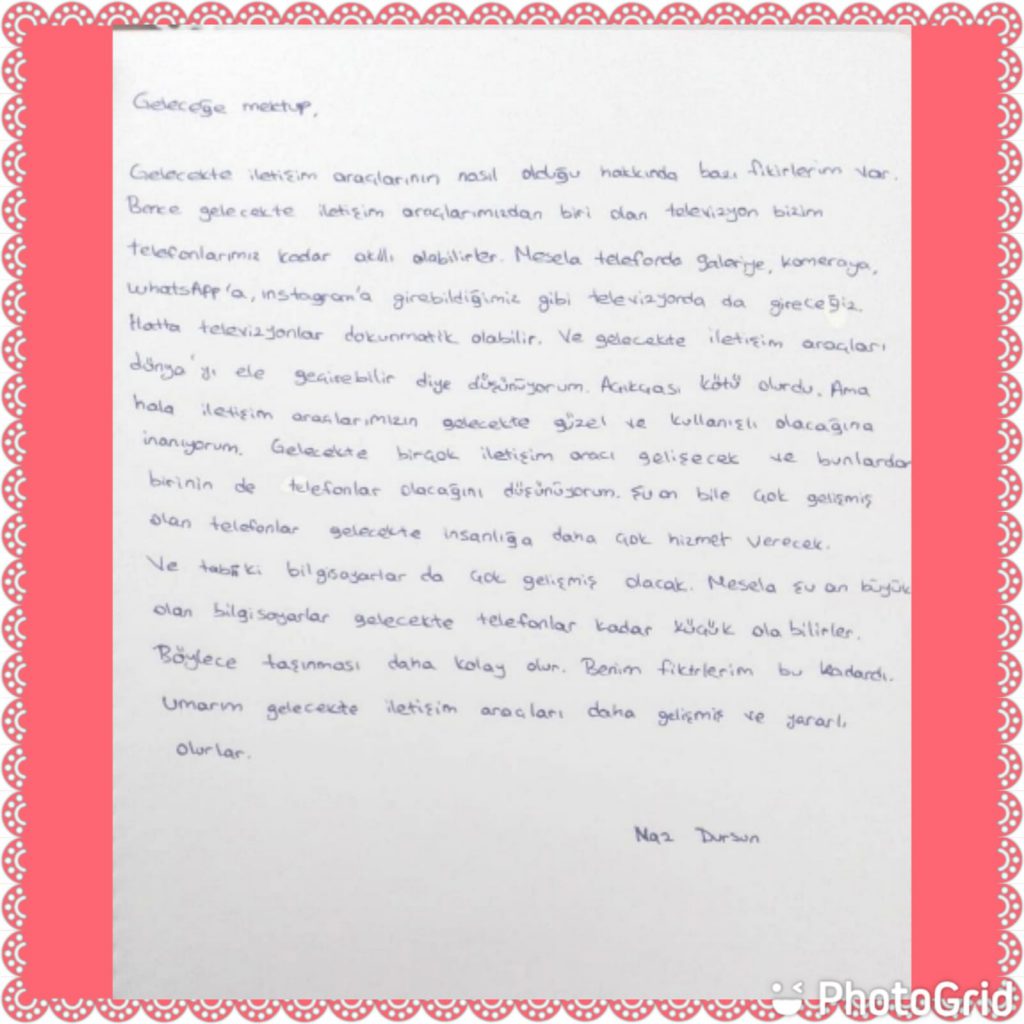 Geleceğe mektup,
Gelecekte iletişim araçlarının nasıl olduğu hakkında bazı fikirlerim var.
Bence gelecekte iletişim araçlarımızdan biri olan televizyon bizim
telefonlarımız kadar akıllı olabilirler. Mesela telefonda galeriye, kameraya,
WhatsApp'a, instagram'a girebildiğimiz gibi televizyonda da gireceğiz.
Hatta televizyonlar dokunmatik olabilir. Ve gelecekte iletişim araçları
dünya'yı ele geçirebilir diye düşünüyorum. Açıkçası kötü olurdu. Ama
hala iletişim araçlarımızın gelecekte güzel ve kullanışlı olacağına
inanıyorum. Gelecekte birçok iletişim aracı gelişecek ve bunlardan
birinin de telefonlar olacağını düşünüyorum. Şu an bile çok gelişmiş
olan telefonlar gelecekte insanlığa daha çok hizmet verecek.
Ve tabiki bilgisayarlar da çok gelişmiş olacak. Mesela şu an büyük
olan bilgisayarlar gelecekte telefonlar kadar küçük olabilirler.
Böylece taşınması daha kolay olur. Benim fikirlerim bu kadardı.
Umarım gelecekte iletişim araçları daha gelişmiş ve yararlı
olurlar.
Naz Dursun
PhotoGrid